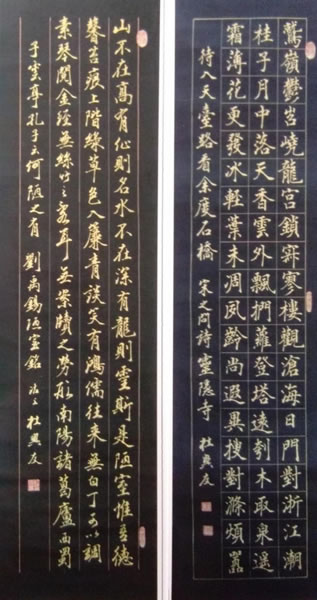 鷲嶺鬱岧嶢龍宮鎖寂寥樓觀滄海日門對浙江潮
桂子月中落天香雲外飄捫蘿登塔遠刳木取泉遥
霜薄花更發冰輕葉未凋夙齡尚遐異搜對滌煩囂
待入天臺路看余度石橋 宋之問詩 靈隱寺 杜興友
山不在高有仙則名水不在深有龍則靈斯是陋室惟吾德
馨苔痕上階綠草色入簾青談笑有鴻儒往來無白丁可以調
素琴閱金經無絲竹之亂耳無案牘之勞形南陽諸葛廬西蜀
子雲亭孔子云何陋之有 劉禹錫陋室銘 杜興友